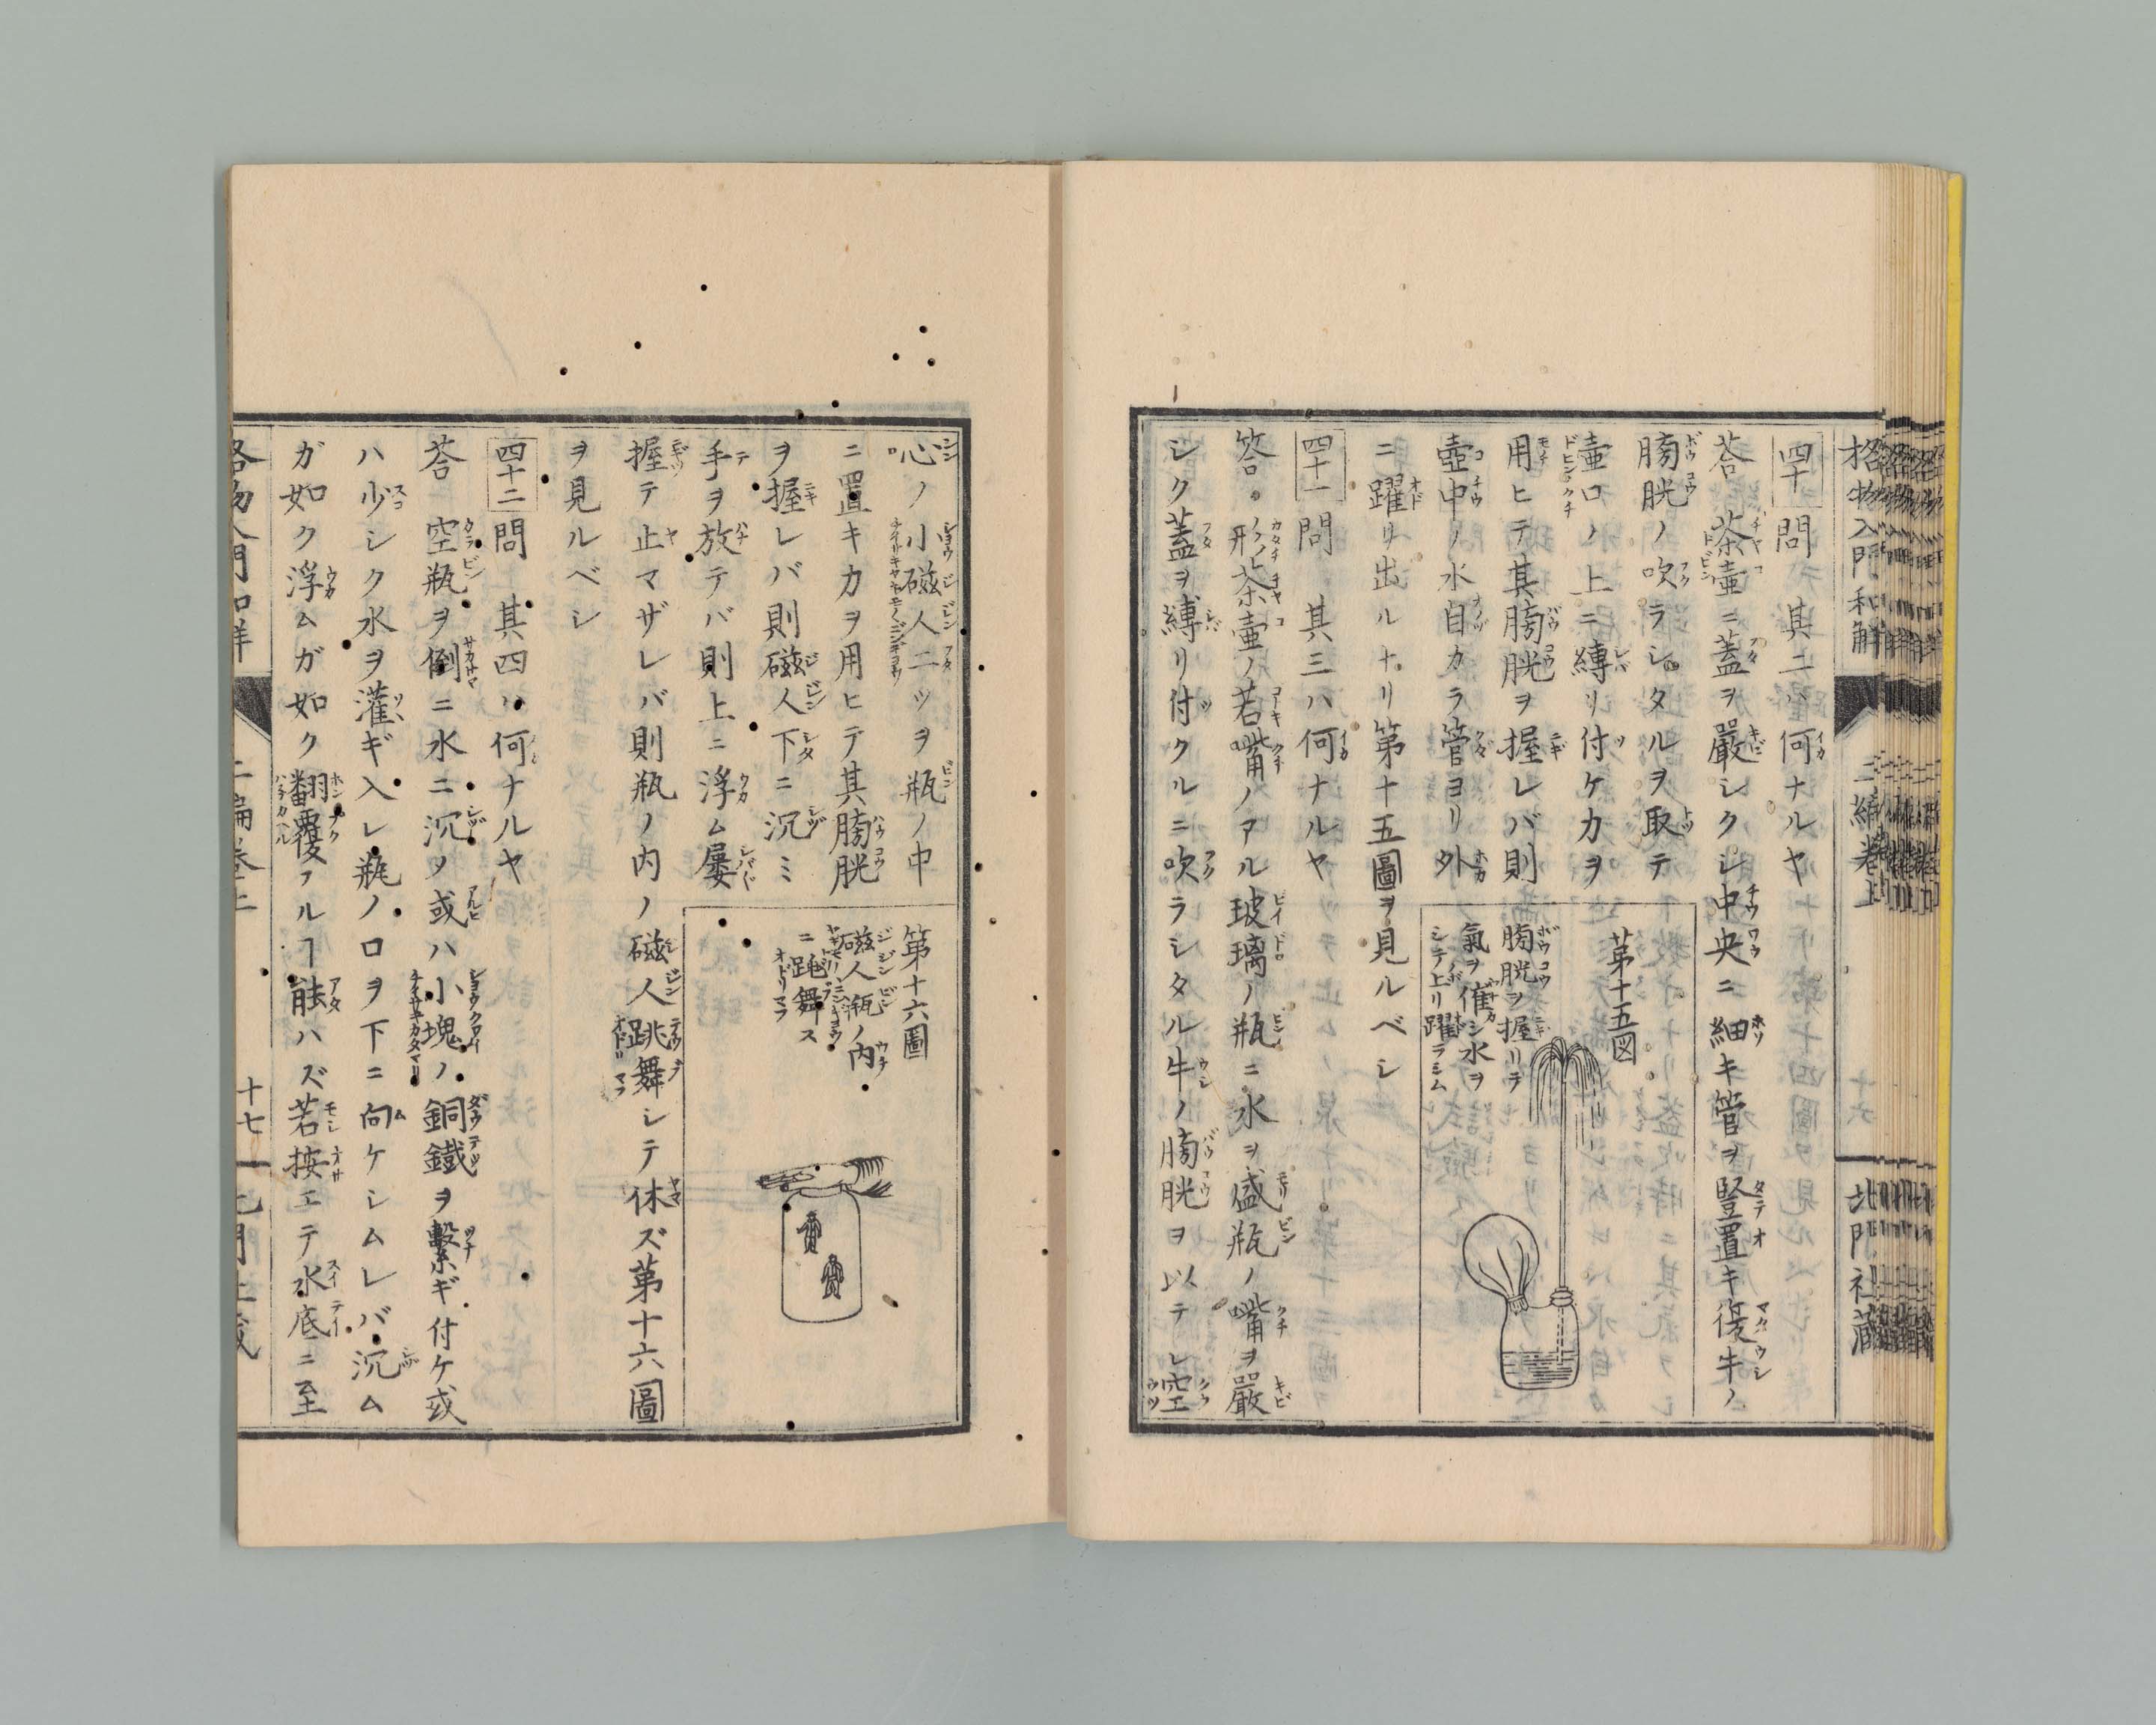 格物入門和解
二編巻上
十六
北門社蔵
四十 問 其二ハ何ナルヤ
荅 茶壷ニ蓋ヲ嚴シクシ中央ニ細キ管ヲ竪置キ復牛ノ
膀胱ノ吹ラシタルヲ取テ
壷口ノ上ニ縛リ付ケ力ヲ
用ヒテ其膀胱ヲ握レバ則
壺中ノ水自カラ管ヨリ外
ニ躍リ出ルナリ第十五圖ヲ見ルベシ
第十五図
膀胱ヲ握リテ
氣ヲ催シ水ヲ
シテ上リ躍ラシム
四十一 問 其三ハ何ナルヤ
答 形茶壷ノ若嘴ノアル玻璃ノ瓶ニ水ヲ盛瓶ノ嘴ヲ嚴
シク蓋ヲ縛リ付クルニ吹ラシタル牛ノ膀胱ヲ以テシ空
心ノ小磁人二ツヲ瓶ノ中
ニ置キ力ヲ用ヒテ其膀胱
ヲ握レバ則磁人下ニ沉ミ
手ヲ放テバ則上ニ浮ム屡
握テ止マザレバ則瓶ノ内ノ磁人跳舞シテ休ズ第十六圖
ヲ見ルベシ
第十六圖
磁人瓶ノ内
ニ跳舞ス
四十二 問 其四ハ何ナルヤ
荅 空瓶ヲ倒ニ水ニ沉ヲ或ハ小塊ノ銅鐵ヲ繫ギ付ケ或
ハ少シク水ヲ灌ギ入レ瓶ノ口ヲ下ニ向ケシムレバ沉ム
ガ如ク浮ムガ如ク翻覆フルヿ能ハズ若按エテ水底ニ至
格物入門和解
二編巻上
十七
北門社蔵